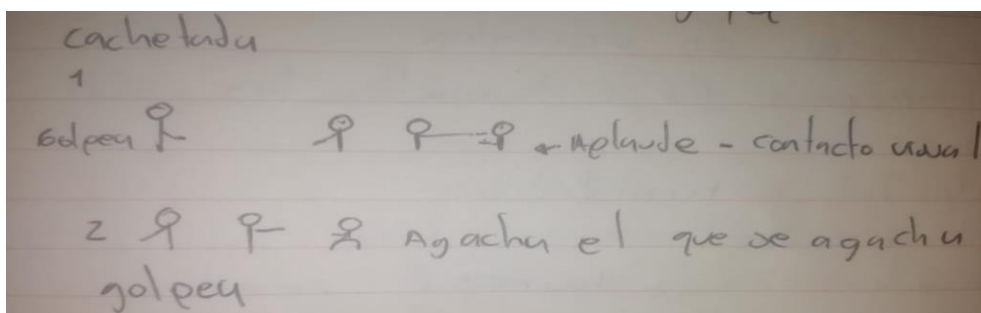 cachetada
1
Golpea ← Aplaude - contacto visual
2 Agacha el que se agacha
golpea